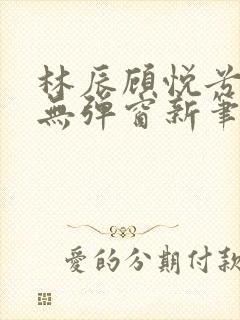 林辰顾悦兮
無彈窗新筆
愛的分期付款